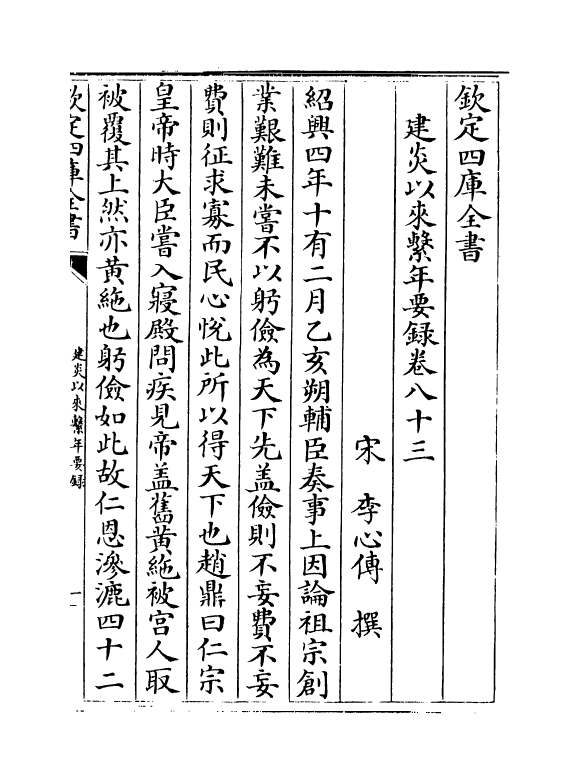 欽定四庫全書
建炎以來繫年要録卷八十三
宋　李心傳　撰
紹興四年十有二月乙亥朔輔臣奏事上因論祖宗創
業艱難未嘗不以躬儉為天下先盖儉則不妄費不妄
費則征求寡而民心恱此所以得天下也趙鼎曰仁宗
皇帝時大臣嘗入寢殿問疾見帝盖舊黄絁被宫人取
被覆其上然亦黄絁也躬儉如此故仁恩滲漉四十二
欽定四庫全書
建炎以來繫年要録
一